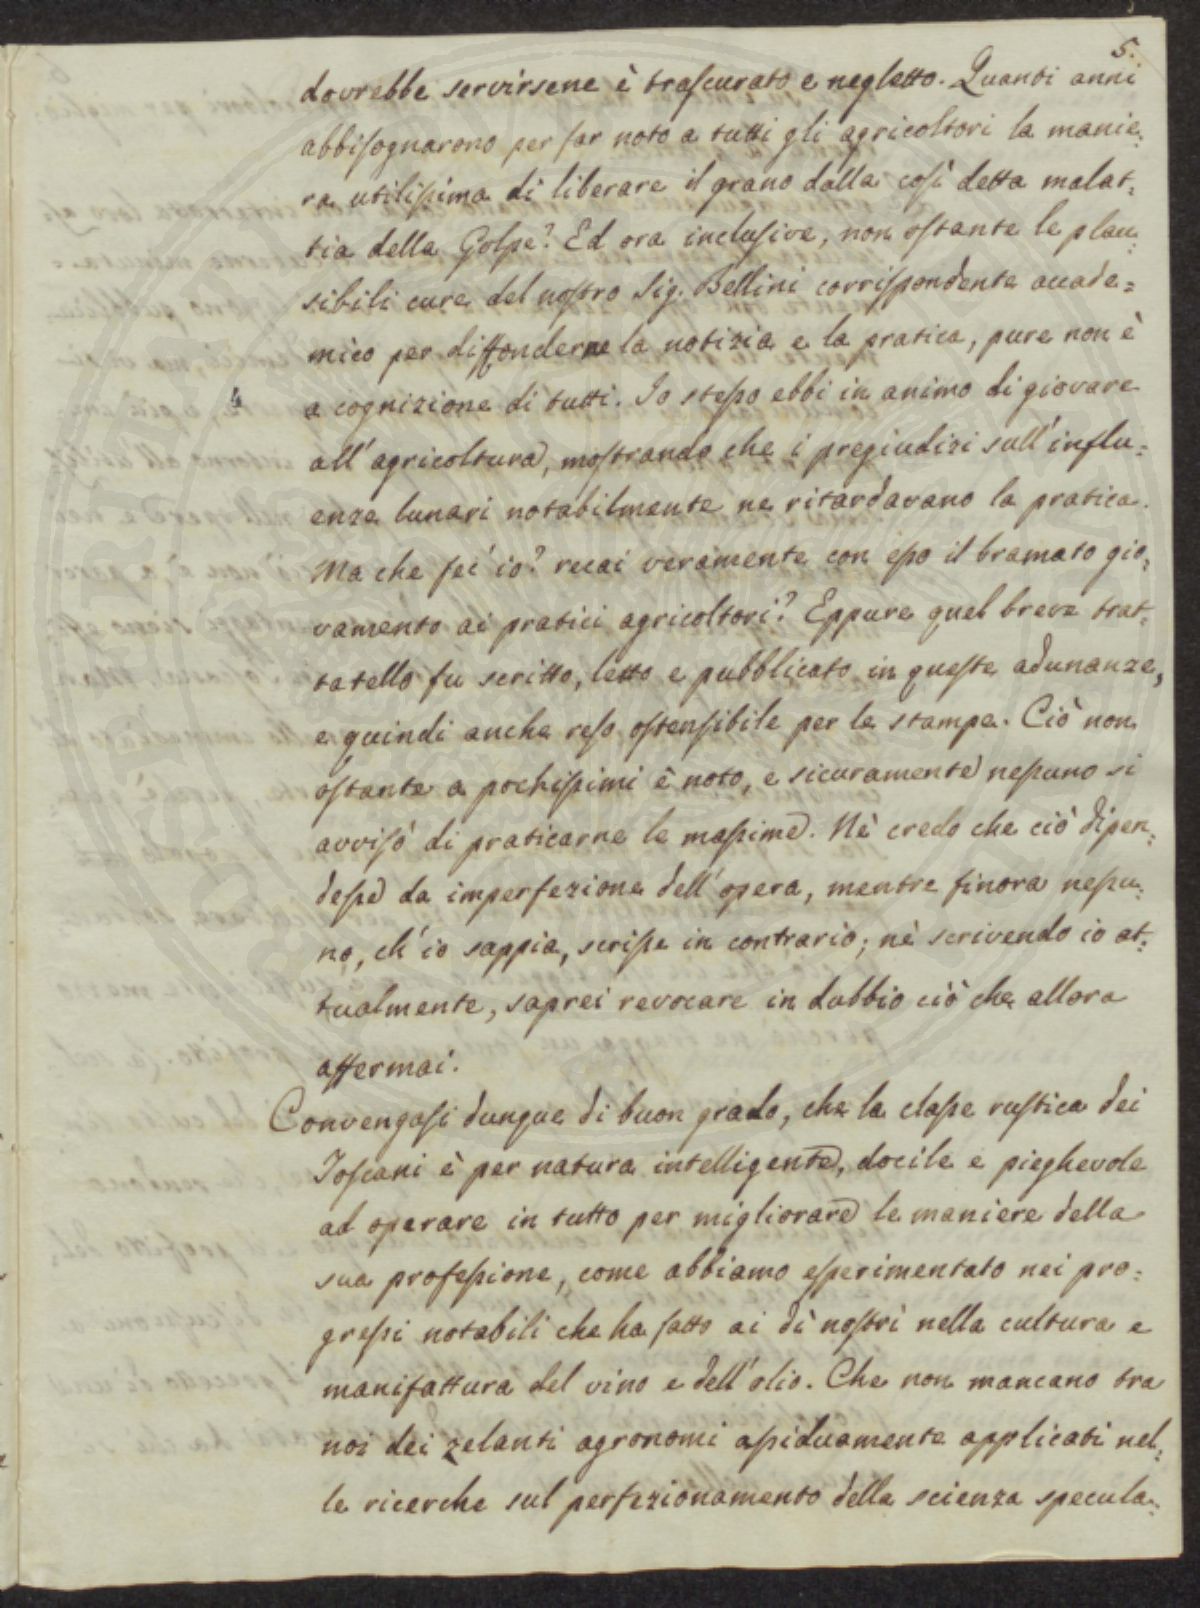 5.
dovrebbe servirsene è trascurato e negletto. Quanti anni
abbisognarono per far noto a tutti gli agricoltori la manie:
ra utilissima di liberare il grano dalla così detta malat:
tia della Golpe? Ed ora inclusive, non ostante le plau:
sibili cure del nostro Sig. Bellini corrispondente accade=
mico per diffonderne la notizia e la pratica, pure non è
a cognizione di tutti. Io stesso ebbi in animo di giovare
all'agricoltura, mostrando che i pregiudizi sull'influ=
enze lunari notabilmente ne ritardavano la pratica.
Ma che fei io? recai veramente con esso il bramato gio:
vamento ai pratici agricoltori? Eppure quel breve trat:
tatello fu scritto, letto e pubblicato in queste adunanze,
e quindi anche reso ostensibile per le stampe. Ciò non
ostante a pochissimi è noto, e sicuramente nessuno si
avvisò di praticarne le massime. Nè credo che ciò dipen:
desse da imperfezione dell'opera, mentre finora nessu:
no, ch'io sappia, scrisse in contrario; nè scrivendo io at:
tualmente, saprei revocare in dubbio ciò che allora
affermai.
Convengasi dunque di buon grado, che la classe rustica dei
Toscani è per natura intelligente, docile e pieghevole
ad operare in tutto per migliorare le maniere della
sua professione, come abbiamo esperimentato nei pro=
gressi notabili che ha fatto ai dì nostri nella cultura e
manifattura del vino e dell'olio. Che non mancano tra
noi dei zelanti agronomi assiduamente applicati nel:
le ricerche sul perfezionamento della scienza specula: